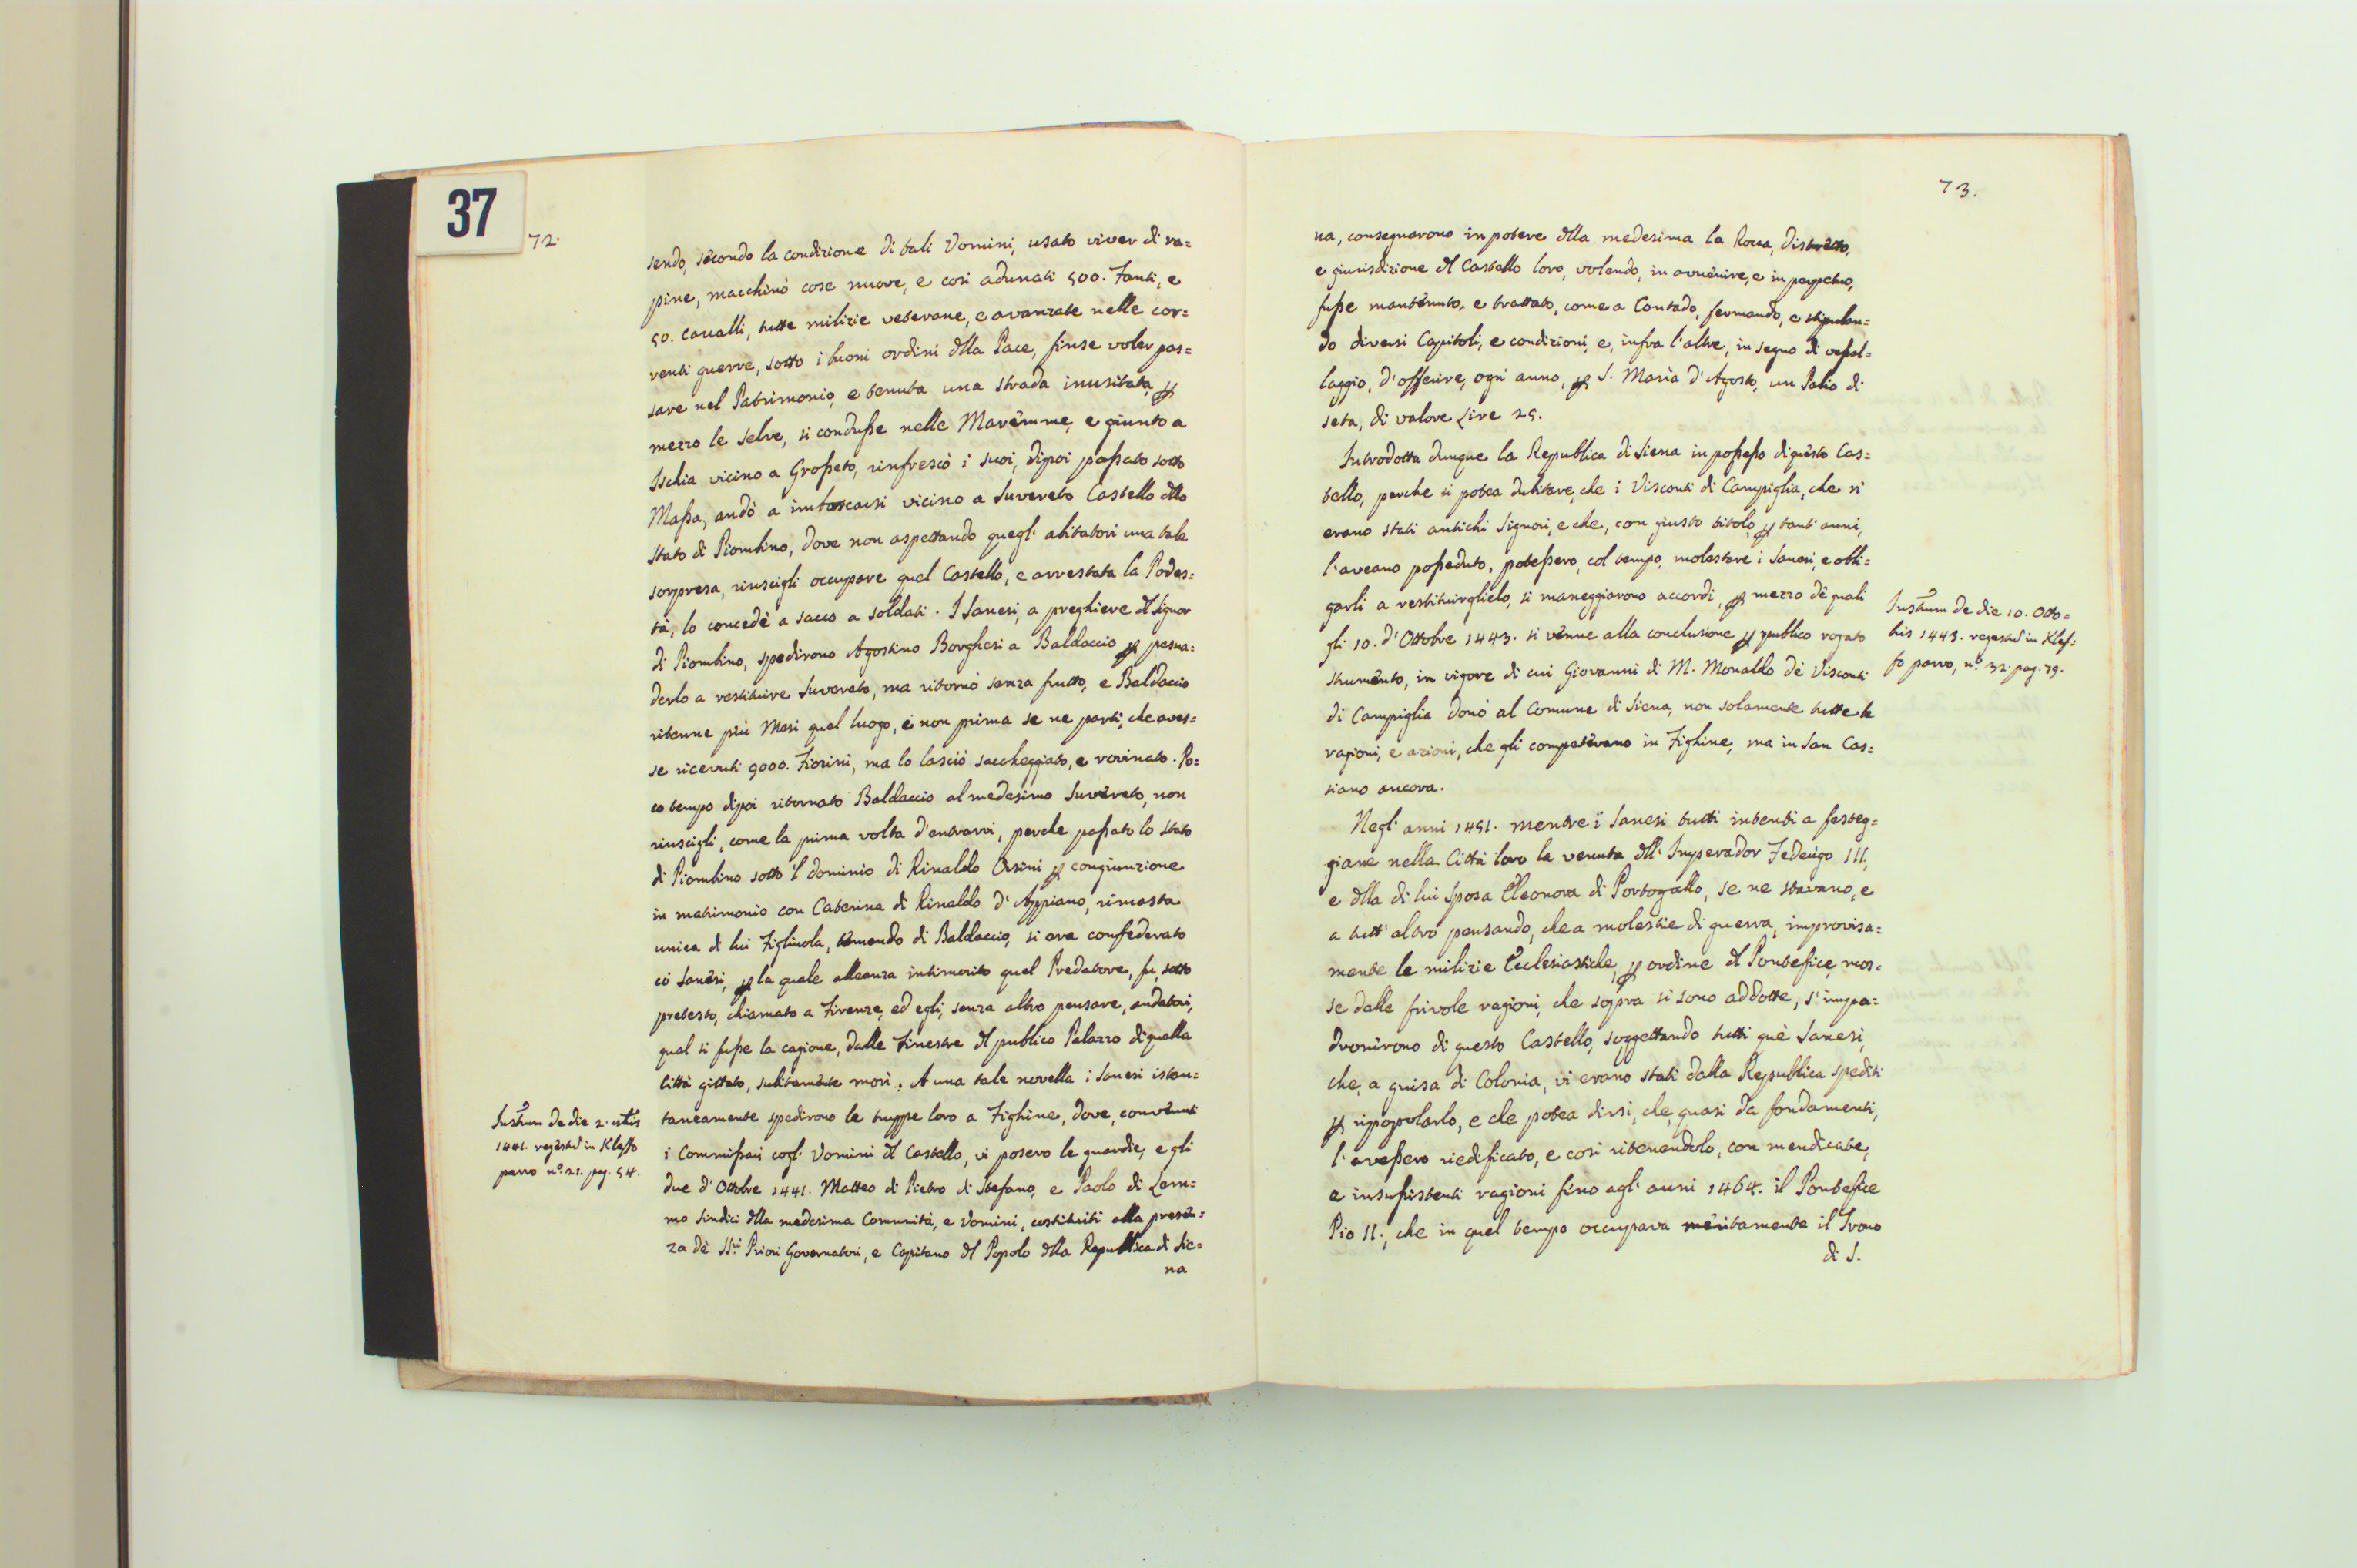 37
72.
sendo, secondo la condizione di tali Uomini, usato viver di ra=
pine, macchinò cose nuove, e così adunati 500. Fanti, e
50. Cavalli, tutte milizie veterane, e avanzate nelle cor=
renti guerre, sotto i buoni ordini dlla Pace, finse voler pas=
sare nel Patrimonio, e tenuta una strada inusitata, p
mezzo le selve, si condusse nelle Maremme, e giunto a
Ischia vicino a Grosseto, rinfrescò i suoi, dipoi passato sotto
Massa, andò a imboscarsi vicino a Suvereto Castello dllo
Stato di Piombino, dove non aspettando quegl' abitatori una tale
sorpresa, riuscigli occupare quel Castello, e arrestata la Podes=
tà, lo concedè a sacco a soldati. I Sanesi, a preghiere dl Signor
di Piombino, spedirono Agostino Borghesi a Baldaccio p persua=
derlo a restituire Suvereto, ma ritornò senza frutto, e Baldaccio
ritenne più Mesi quel luogo, e non prima se ne partì, che aves=
se ricevuti 9000. Fiorini, ma lo lasciò saccheggiato, e rovinato. Po=
co tempo dipoi ritornato Baldaccio al medesimo Suvereto, non
riuscigli, come la prima volta d'entrarvi, perche passato lo Stato
di Piombino sotto 'l dominio di Rinaldo Orsini p congiunzione
in matrimonio con Caterina di Rinaldo d'Appiano, rimasta
unica di lui Figliuola, temendo di Baldaccio, si era confederato
có Sanesi, p la quale alleanza intimorito quel Predatore, fu, sotto
pretesto, chiamato a Firenze, ed egli, senza altro pensare, andatovi,
qual si fusse la cagione, dalle Finestre dl publico Palazzo di quella
Città gittato, subitamente morì. A una tale novella i Sanesi istan=
taneamente spedirono le truppe loro a Fighine, dove, convenuti
i Commissari cogl' Uomini dl Castello, vi posero le guardie, e gli
due d'Ottobre 1441. Matteo di Pietro di Stefano, e Paolo di Lem=
mo Sindici dlla medesima Comunità, e Uomini, costituiti alla presen=
za dè SSri Priori Governatori, e Capitano dl Popolo dlla Republica di Sie=
na
Instrum de die 2.
1441. registrd in Kleffo
parvo nº. 21. pag. 54.
73.
na, consegnarono in potere dlla medesima la Rocca, Distretto,
e giurisdizione dl Castello loro, volendo, in avvenire, e in perpetuo,
fusse mantenuto, e trattato, come a Contado, fermando, e stipulan=
do diversi Capitoli, e condizioni, e, infra l'altre, in segno di vassal=
laggio, d'offerire, ogni anno, p S. Maria d'Agosto, un Palio di
seta, di valore Lire 25.
Introdotta dunque la Republica di Siena in possesso di questo Cas=
tello, perche si potea dubitare, che i Visconti di Campiglia, che ri
erano stati antichi Signori, e che, con giusto titolo, p tanti anni,
l'aveano posseduto, potessero, col tempo, molestare i Sanesi, e obbli=
garli a restituirglielo, si maneggiarono accordi, p mezzo dè quali
gli 10. d'Ottobre 1443. si venne alla conclusione p publico rogato
strumento, in vigore di cui Giovanni di M. Monaldo dè Visconti
di Campiglia donò al Comune di Siena, non solamente tutte le
ragioni, e azioni, che gli competevano in Fighine, ma in San Cas=
siano ancora.
Negl' anni 1451. mentre i Sanesi tutti intenti a festeg=
giare nella Città loro la venuta dll' Imperador Federigo III,
e dlla di lui Sposa Eleonora di Portogallo, se ne stavano, e
a tutt' altro pensando, che a molestie di guerra, improvisa=
mente le milizie Ecclesiastiche, p ordine dl Pontefice, mos=
se dalle frivole ragioni, che sopra si sono addotte, s' impa=
dronirono di questo Castello, soggettando tutti què Sanesi,
che, a guisa di Colonia, vi erano stati dalla Republica spediti
p ripopolarlo, e che potea dirsi, che, quasi da fondamenti,
l'avessero riedificato, e così ritenendolo, con mendicate,
e insussistenti ragioni fino agl' anni 1464. il Pontefice
Pio II., che in quel tempo occupava meritamente il Trono
di S.
Instrum de die 10. Otto=
bris 1443. registrd in Klef=
fo parvo, nº. 32. pag. 79.